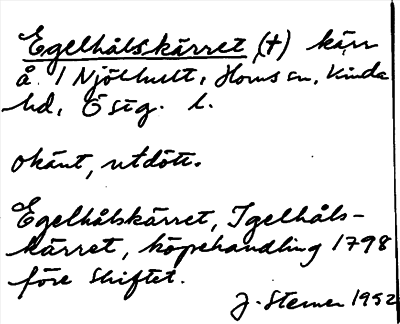 Egelhålskärret (†) kärr
å 1 Njölhult, Horns sn, Kinda
hd, Östg. l.
okänt, utdött.
Egelhålskärret, Igelhåls-
kärret, köpehandling 1798
före skiftet.
J. Sterner 1952